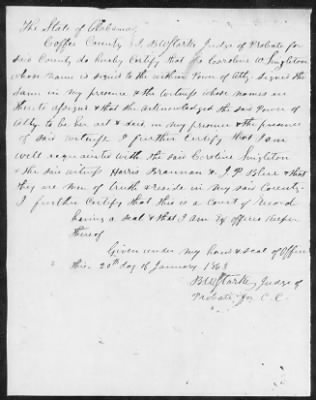 The State of Alabama,
Coffee County I, B W Starke Judge of Probate for
said County do hereby Certify that the Caroline W. Singleton
whose name is signed to the within Power of Atty. signed the
same in my presence & the witness whose names are
thereto assigned & that she acknowledged the said Power of
Atty to be her act & deed in my presence & the presence
of said witness I further Certify that I am
well acquainted with the said Caroline Singleton
& the said witness Harris Brannan & J. P. Blair & that
they are men of truth & reside in my said County.
I further Certify that this is a Court of Record
having a seal & that I Am Ex officio keeper
thereof
Given under my hand & seal of Office
this 20th day of January 1863
B W Starke, Judge of
Probate for C. C.